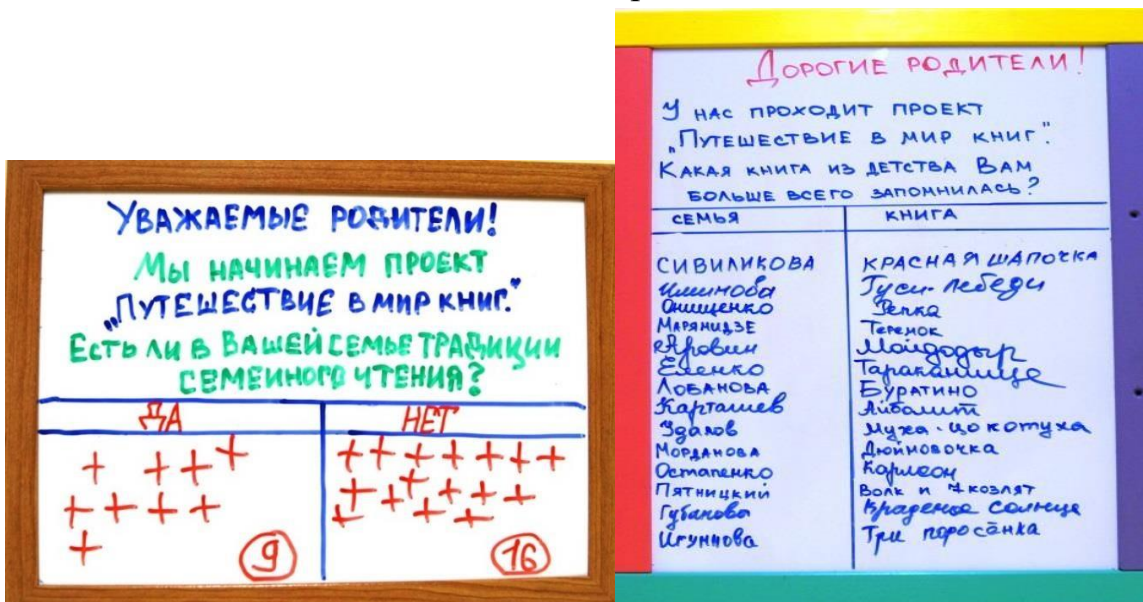 Уважаемые родители!
Мы начинаем проект
„Путешествие в мир книг."
Есть ли в Вашей семье традиции
семейного чтения?
ДА НЕТ
+ + + +
+ + + +
+
9
+ + + + + + +
+ + + + + +
+ + +
16
Дорогие родители!
У нас проходит проект
„Путешествие в мир книг."
Какая книга из детства Вам
больше всего запомнилась?
семья книга
Сивиликова Красная шапочка
Гуси-лебеди
Онищенко Репка
Марянидзе Теремок
Яровин Мойдодыр
Еленко Тараканище
Лобанова Буратино
Карташев Айболит
Удалов Муха-цокотуха
Морданова Дюймовочка
Остапенко Карлсон
Пятницкий Волк и 7 козлят
Губановы Краденое солнце
Три поросёнка